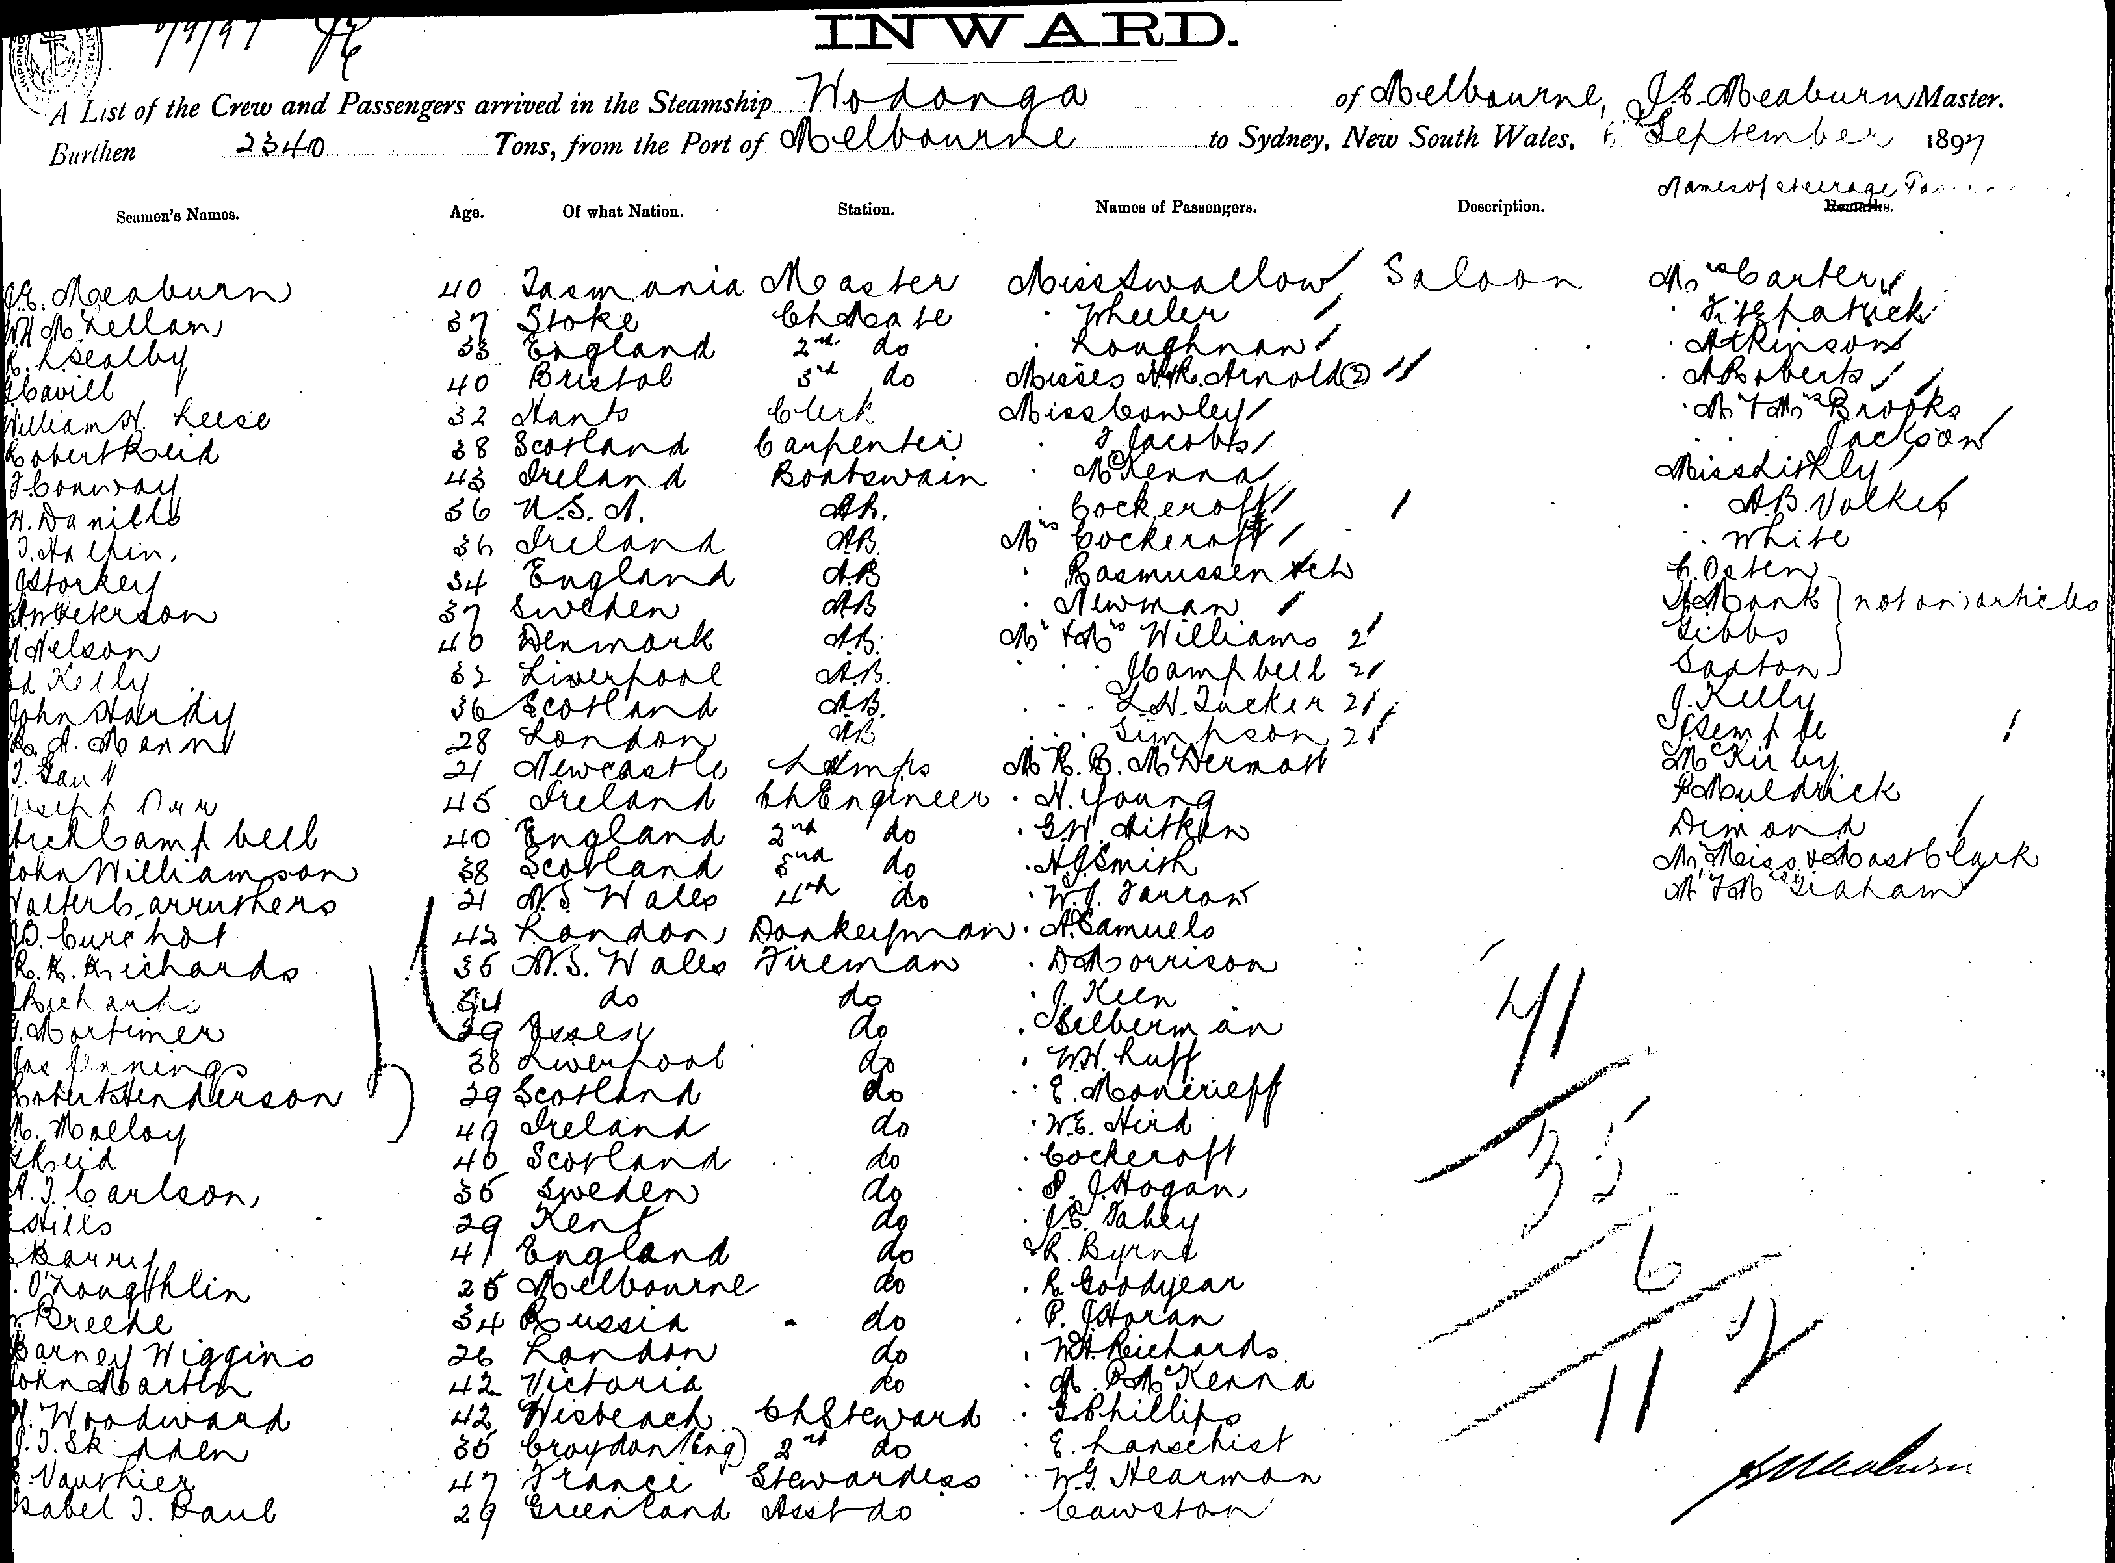 6/9/97
INWARD.
A List of the Crew and Passengers arrived in the Steamship Wodonga of Melbourne, J.E. Meaburn Master.
Burthen 2340 Tons, from the Port of Melbourne to Sydney, New South Wales, 6 September 1897
Names of steerage
Seamen's Names. Age. Of what Nation. Station. Names of Passengers. Description. Remarks.
J.E. Meaburn 40 Tasmania Master Miss Swallow Saloon Mrs Carter
37 Stoke Ch Mate Wheeler Fitzpatrick
33 England 2nd do Loughnan Atkinson
Cavill 40 Bristol 3rd do Misses Arnold 2 A Roberts
William H. Leese 32 Hants Clerk Miss Cowley Mr & Mrs Brooks
Robert Reid 38 Scotland Carpenter F Jacobs Jackson
T Conway 43 Ireland Boatswain McKenna Miss
H. Daniels 36 U.S.A. AB. Cockcroft A.B.
T. Halpin. 36 Ireland AB. Mrs Cockcroft White
J Storkey 34 England A.B Rasmussen & ch C. Osten
Peterson 37 Sweden AB Newman A Monk } not on articles
Nelson 40 Denmark A.B. Mr & Mrs Williams 2 Gibbs
Kelly 32 Liverpool A.B. J Campbell 2 Saxton
John Hardy 36 Scotland AB. L.H. Tucker 2 J. Kelly
R. A. Mann 28 London AB Simpson 2
T. Gaut 21 Newcastle Lamps Mr R. B. McDermott McKirby
Joseph 45 Ireland Ch Engineer H. Young P Muldrick
Arch Campbell 40 England 2nd do G.W. Aitken Dimond
John Williamson 38 Scotland 3rd do H.J. Smith Mr, Miss & Mast Clark
Walter Carruthers 21 N.S. Wales 4th do W.J. Farrow Mr & Mrs Graham
42 London Donkeyman A. Samuels
R. K. Richards 35 N.S. Wales Fireman D Morrison
Richards 34 do do J. Keen
Mortimer 29 Essex do Silberman
Jas Jennings 38 Liverpool do W.H. Luff
Robert Henderson 29 Scotland do E. Moncrieff
M. Molloy 49 Ireland do W.E. Hird
Reid 40 Scotland do Cockcroft
A. J. Carlson 35 Sweden do P. J. Hogan
Hills 29 Kent do J.E. Fahey
Barry 41 England do R. Byrne
O'Loughlin 25 Melbourne do R. Goodyear
34 Russia do P. J. Horan
Barney Wiggins 26 London do W.H. Richards
John Martin 42 Victoria do P McKenna
Woodward 42 Wisbeach Ch Steward G. Phillips
35 Croydon (Eng) 2nd do E.
Vauthier 47 France Stewardess W.G. Hearman
Isabel T. Paul 29 Greenland Asst do Cawston
41
35
6
11
JE Meaburn